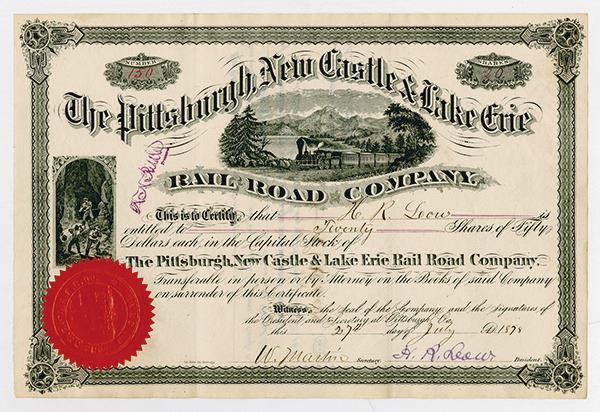 NUMBER
150
SHARES
20
The Pittsburgh, New Castle & Lake Erie
RAIL ROAD COMPANY.
This is to Certify, that H. R. Leow is
entitled to Twenty Shares of Fifty
Dollars each, in the Capital Stock of
The Pittsburgh, New Castle & Lake Erie Rail Road Company.
Transferable in person or by Attorney on the Books of said Company
on surrender of this Certificate.
Witness, the Seal of the Company and the Signatures of
the President and Secretary at Pittsburgh Pa.
this 27th day of July AD 1878
W. Martin Secretary. H. R. Leow President.